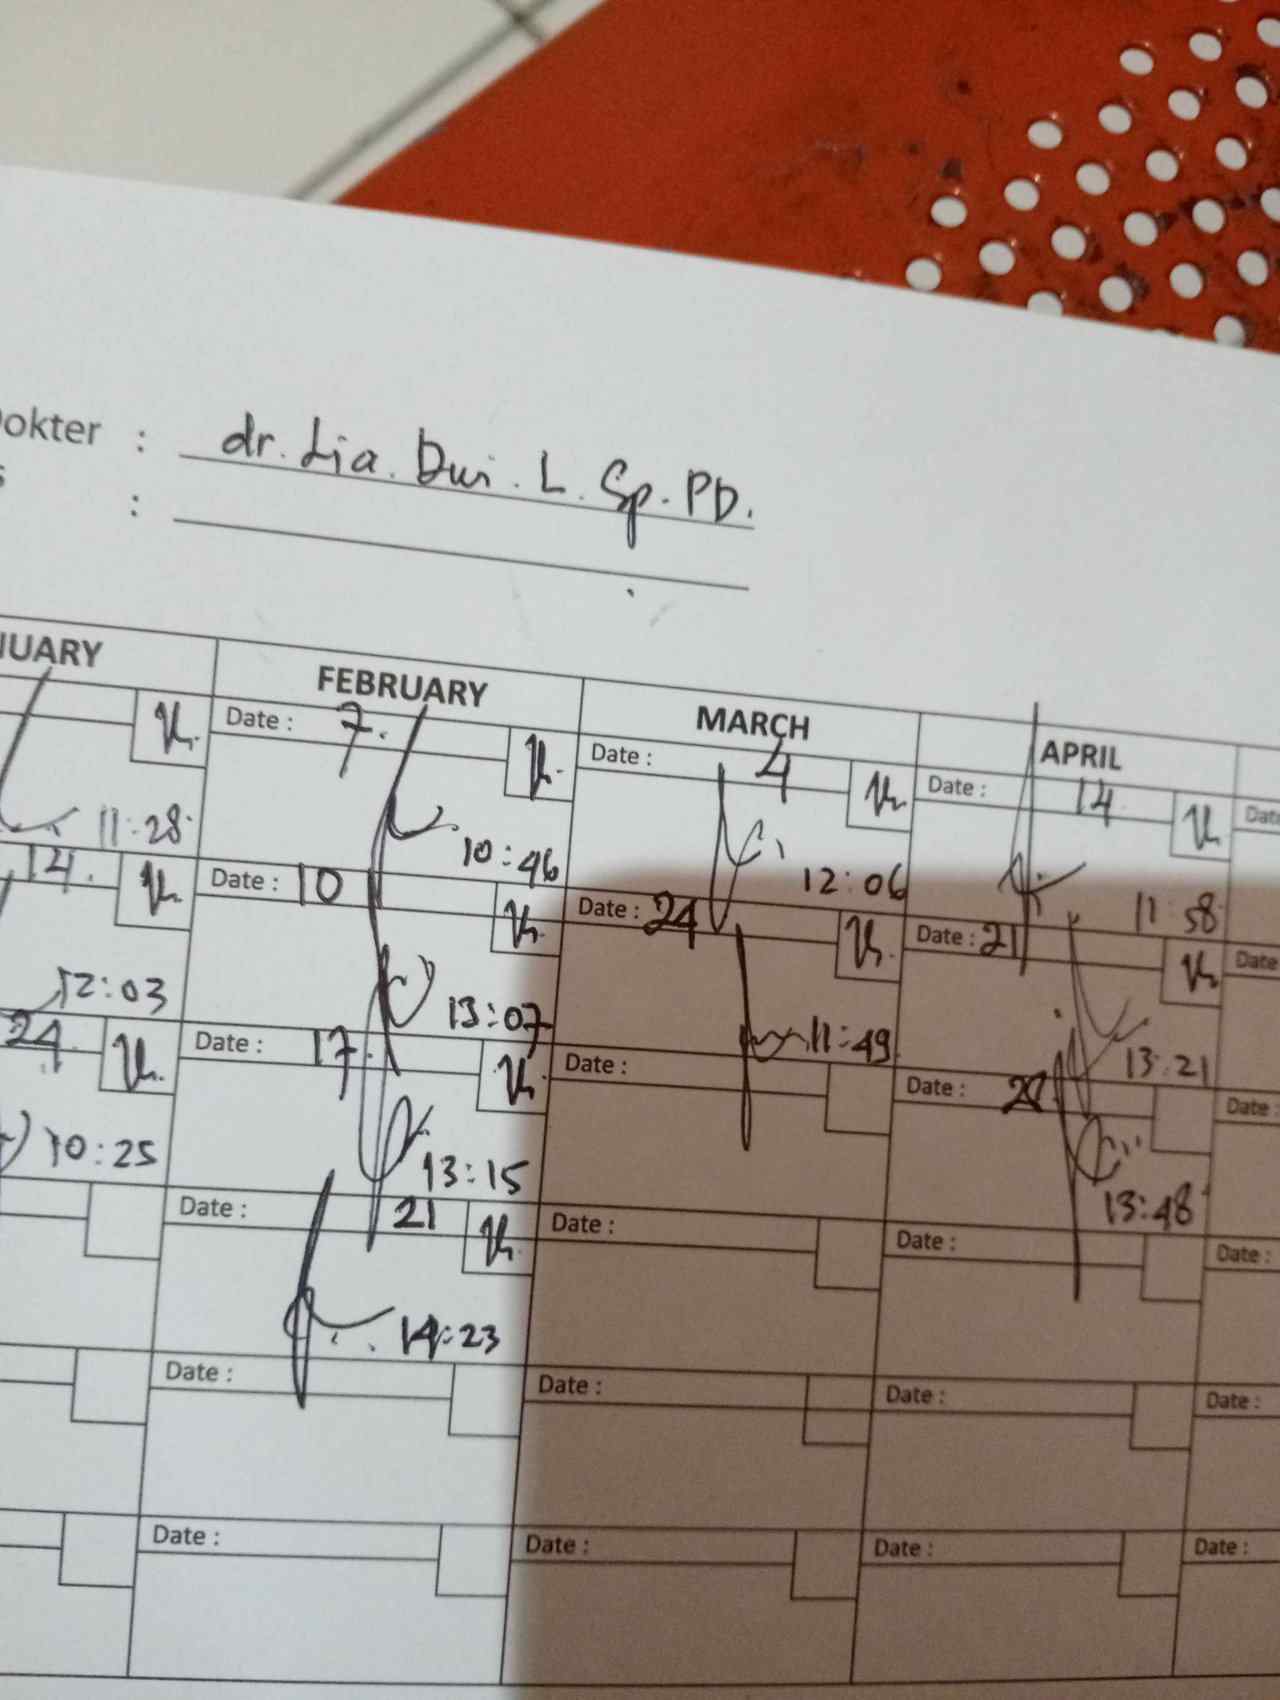 Dokter : dr. Lia. Dwi. L. Sp. PD.
:
FEBRUARY MARCH APRIL
Date : 7. Date : 4 Date : 14
11:28 10:46 12:06 11:58
14. Date : 10 Date : 24 Date : 21 Date
12:03 13:07 11:49 13:21
24 Date : 17 Date : Date : Date :
10:25 13:15 13:48
Date : 21 Date : Date : Date :
14:23
Date : Date : Date : Date :
Date : Date : Date : Date :